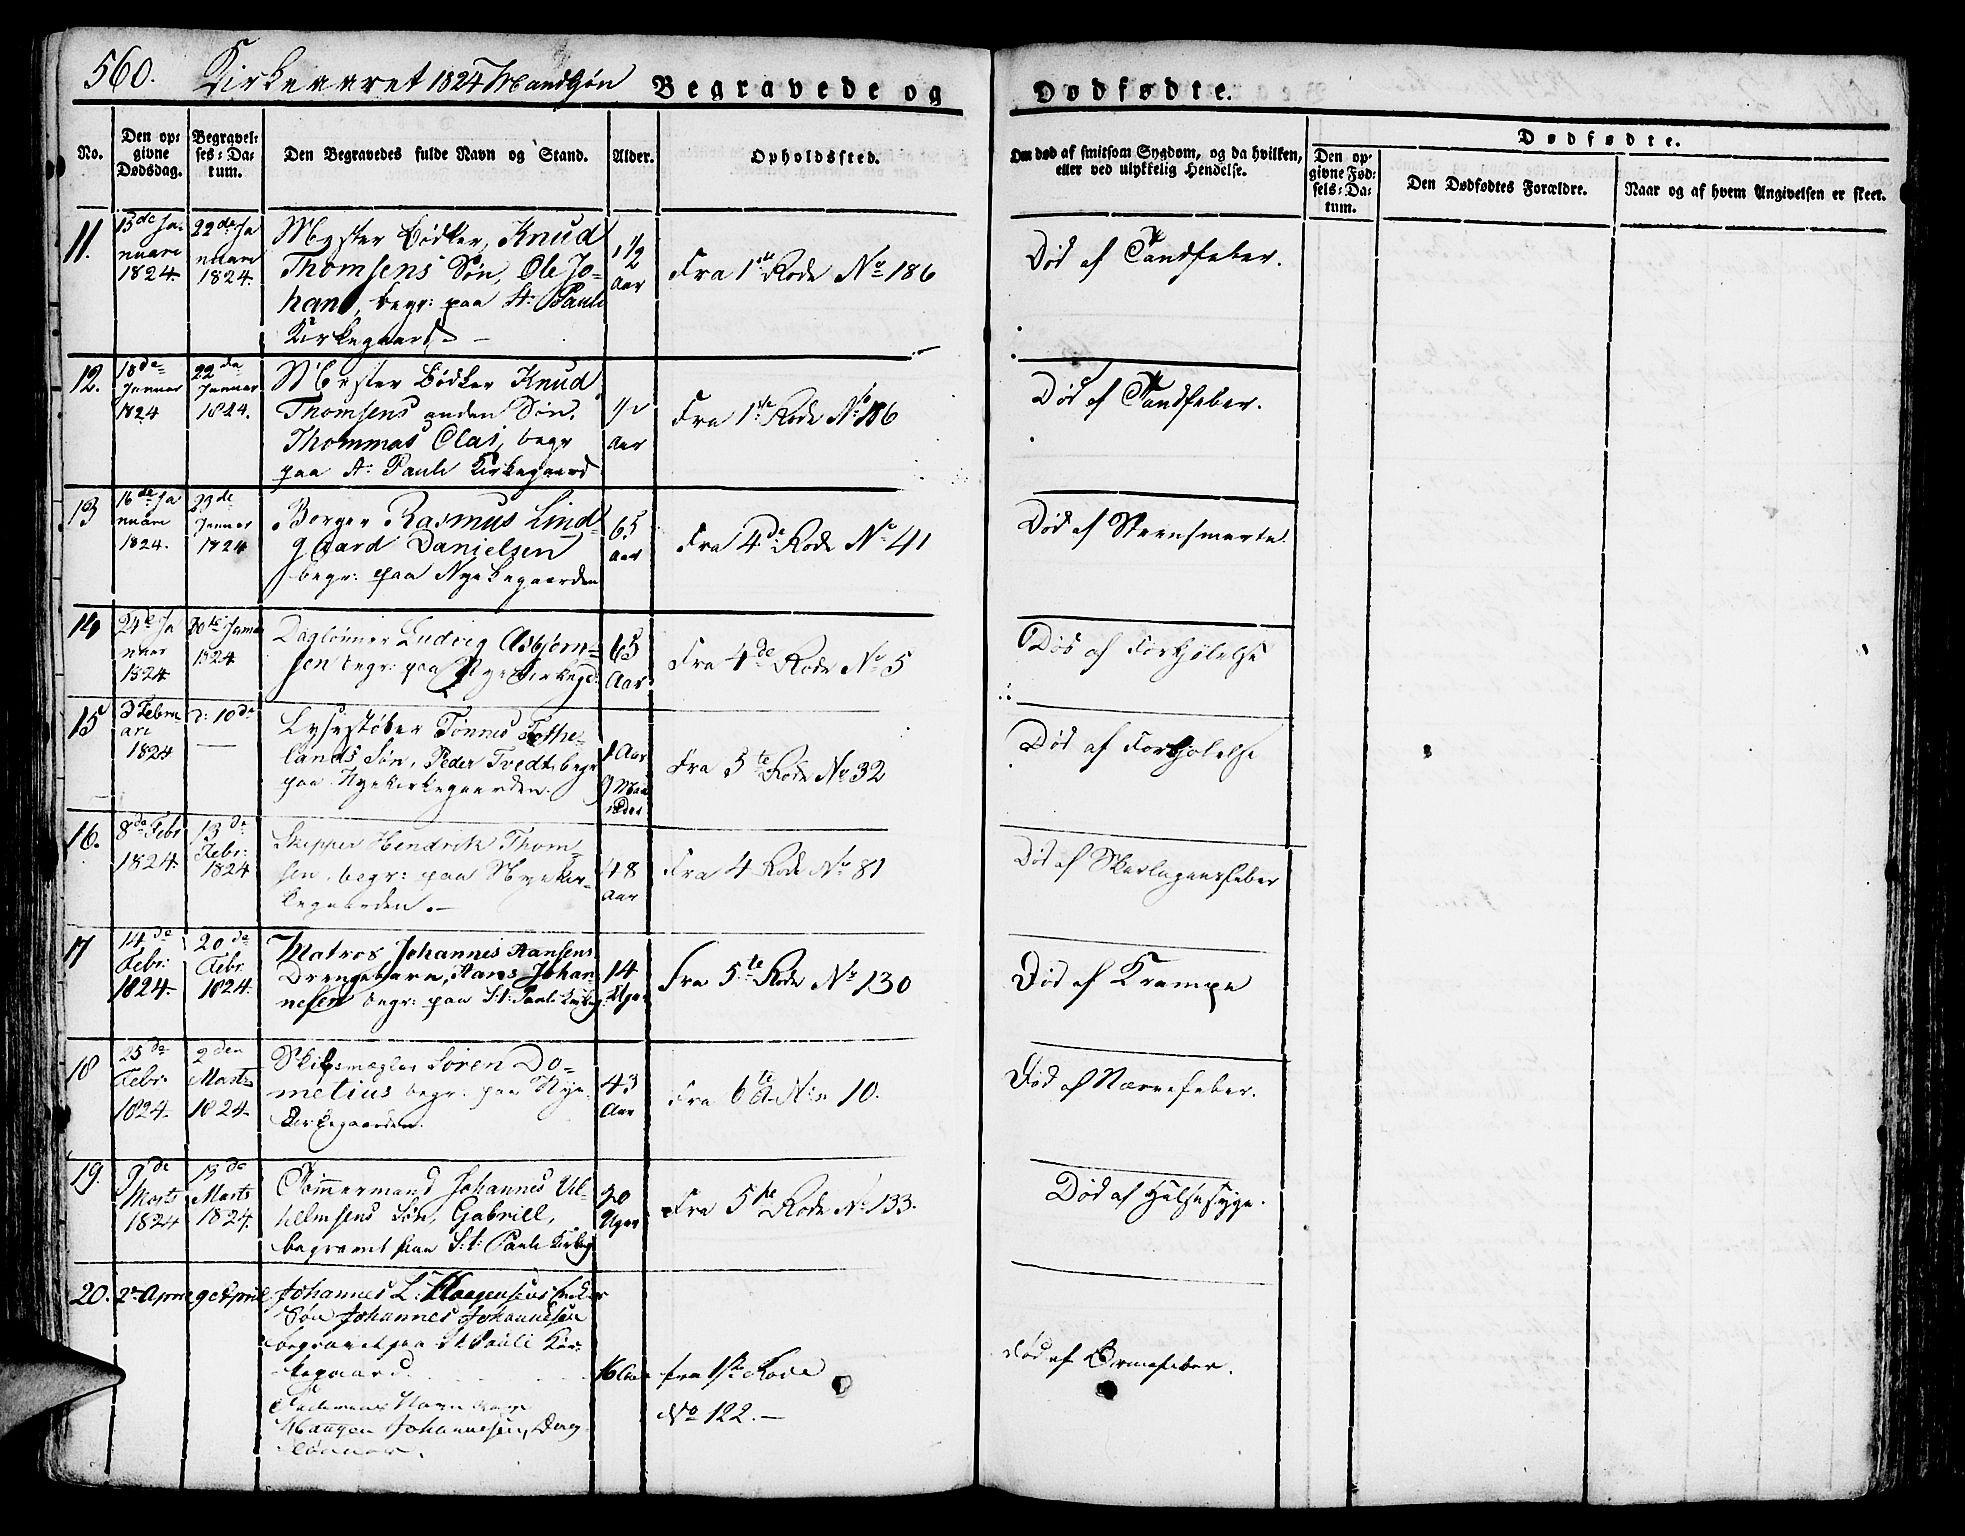 560. Kirkeaaret 1824 Mandkjøn Begravede og Dødfødte.
No.
Den op-
givne
Dødsdag.
Begravel-
ses-Da-
tum.
Den Begravedes fulde Navn og Stand.
Alder.
Opholdssted.
Om død af smitsom Sygdom, og da hvilken,
eller ved ulykkelig Hendelse.
Dødfødte.
Den op-
givne Fød-
sels-Da-
tum.
Den Dødfødtes Forældre.
Naar og af hvem Angivelsen er skeet.
11.
15de Ja-
nuari
1824.
22de Ja
nuari
1824.
Myster Bødker, Knud
Thomsens Søn, Ole Jo-
han, begr: paa St: Pauli
Kirkegaard.
1 1/2
Aar
Fra 1ste Rode No 186
Død af Tandfeber.
12.
18de
Januar
1824
22de
Januar
1824.
Myster Bødker Knud
Thomsens anden Søn,
Thommas Olai, begr
paa St: Pauli Kirkegaard
1/2
Aar
Fra 1ste Rode No 186
Død af Tandfeber.
13
16de Ja
nuari
1824.
23de
Januar
1824
Borger Rasmus Lind
gaard Danielsen
begr: paa Nyekegaarden
65
Aar
Fra 4de Rode No 41
Død af Steensmerte.
14
24de Ja
nuar
1824
30te Janua
1824
Daglønner Ludvig Asbjørn-
sen begr: paa Nyekirkegd:
65
Aar
Fra 4de Rode No 5
Død af Forkjølelse
15
3 Febru
ari
1824
d: 10de
Lysestøber Tønnes Tothe-
lands Søn, Peder Tvedt, begr
paa Nyekirkegaarden.
1 Aar
9 Maa
neder
Fra 5te Rode No 32
Død af Forkjølelse
16.
8de Febr
1824.
13de
Febr:
1824
Skipper Hendrik Thom-
sen, begr: paa Nyekir-
kegaarden.
48
Aar
Fra 4 Rode No 81
Død af Skarlagensfeber
17
14de
Febr:
1824.
20de
Febr
1824.
Matros Johannes Hansens
Drengebarn, Hans Johan-
nesen begr: paa St: Pauli Kirkeg:
14
Uger
Fra 5te Rode No 130
Død af Krampe
18
25de
Febr:
1824.
2den
Marts
1824.
Skibsmegler Søren Do-
metius begr: paa Nye
Kirkegaarden.
43
Aar
Fra 6te R No 10.
Død af Nervefeber.
19.
9de
Marts
1824
15de
Marts
1824.
Tømmermand Johannes Vil-
helmsens Søn, Gabriell,
begravet paa St: Pauli Kirkeg
20
Uger
Fra 5te Rode No 133.
Død af Halsesyge.
20.
2n April
9e April
Johannes L: Haagensens
Søn Johannes Johannesen
begravet paa St Pauli Kir-
kegaard.
Faderens Navn
Haagen Johannesen, Dag-
lønner.
16 Aar
fra 1ste Rode
No 122.
Død af Ormefeber.